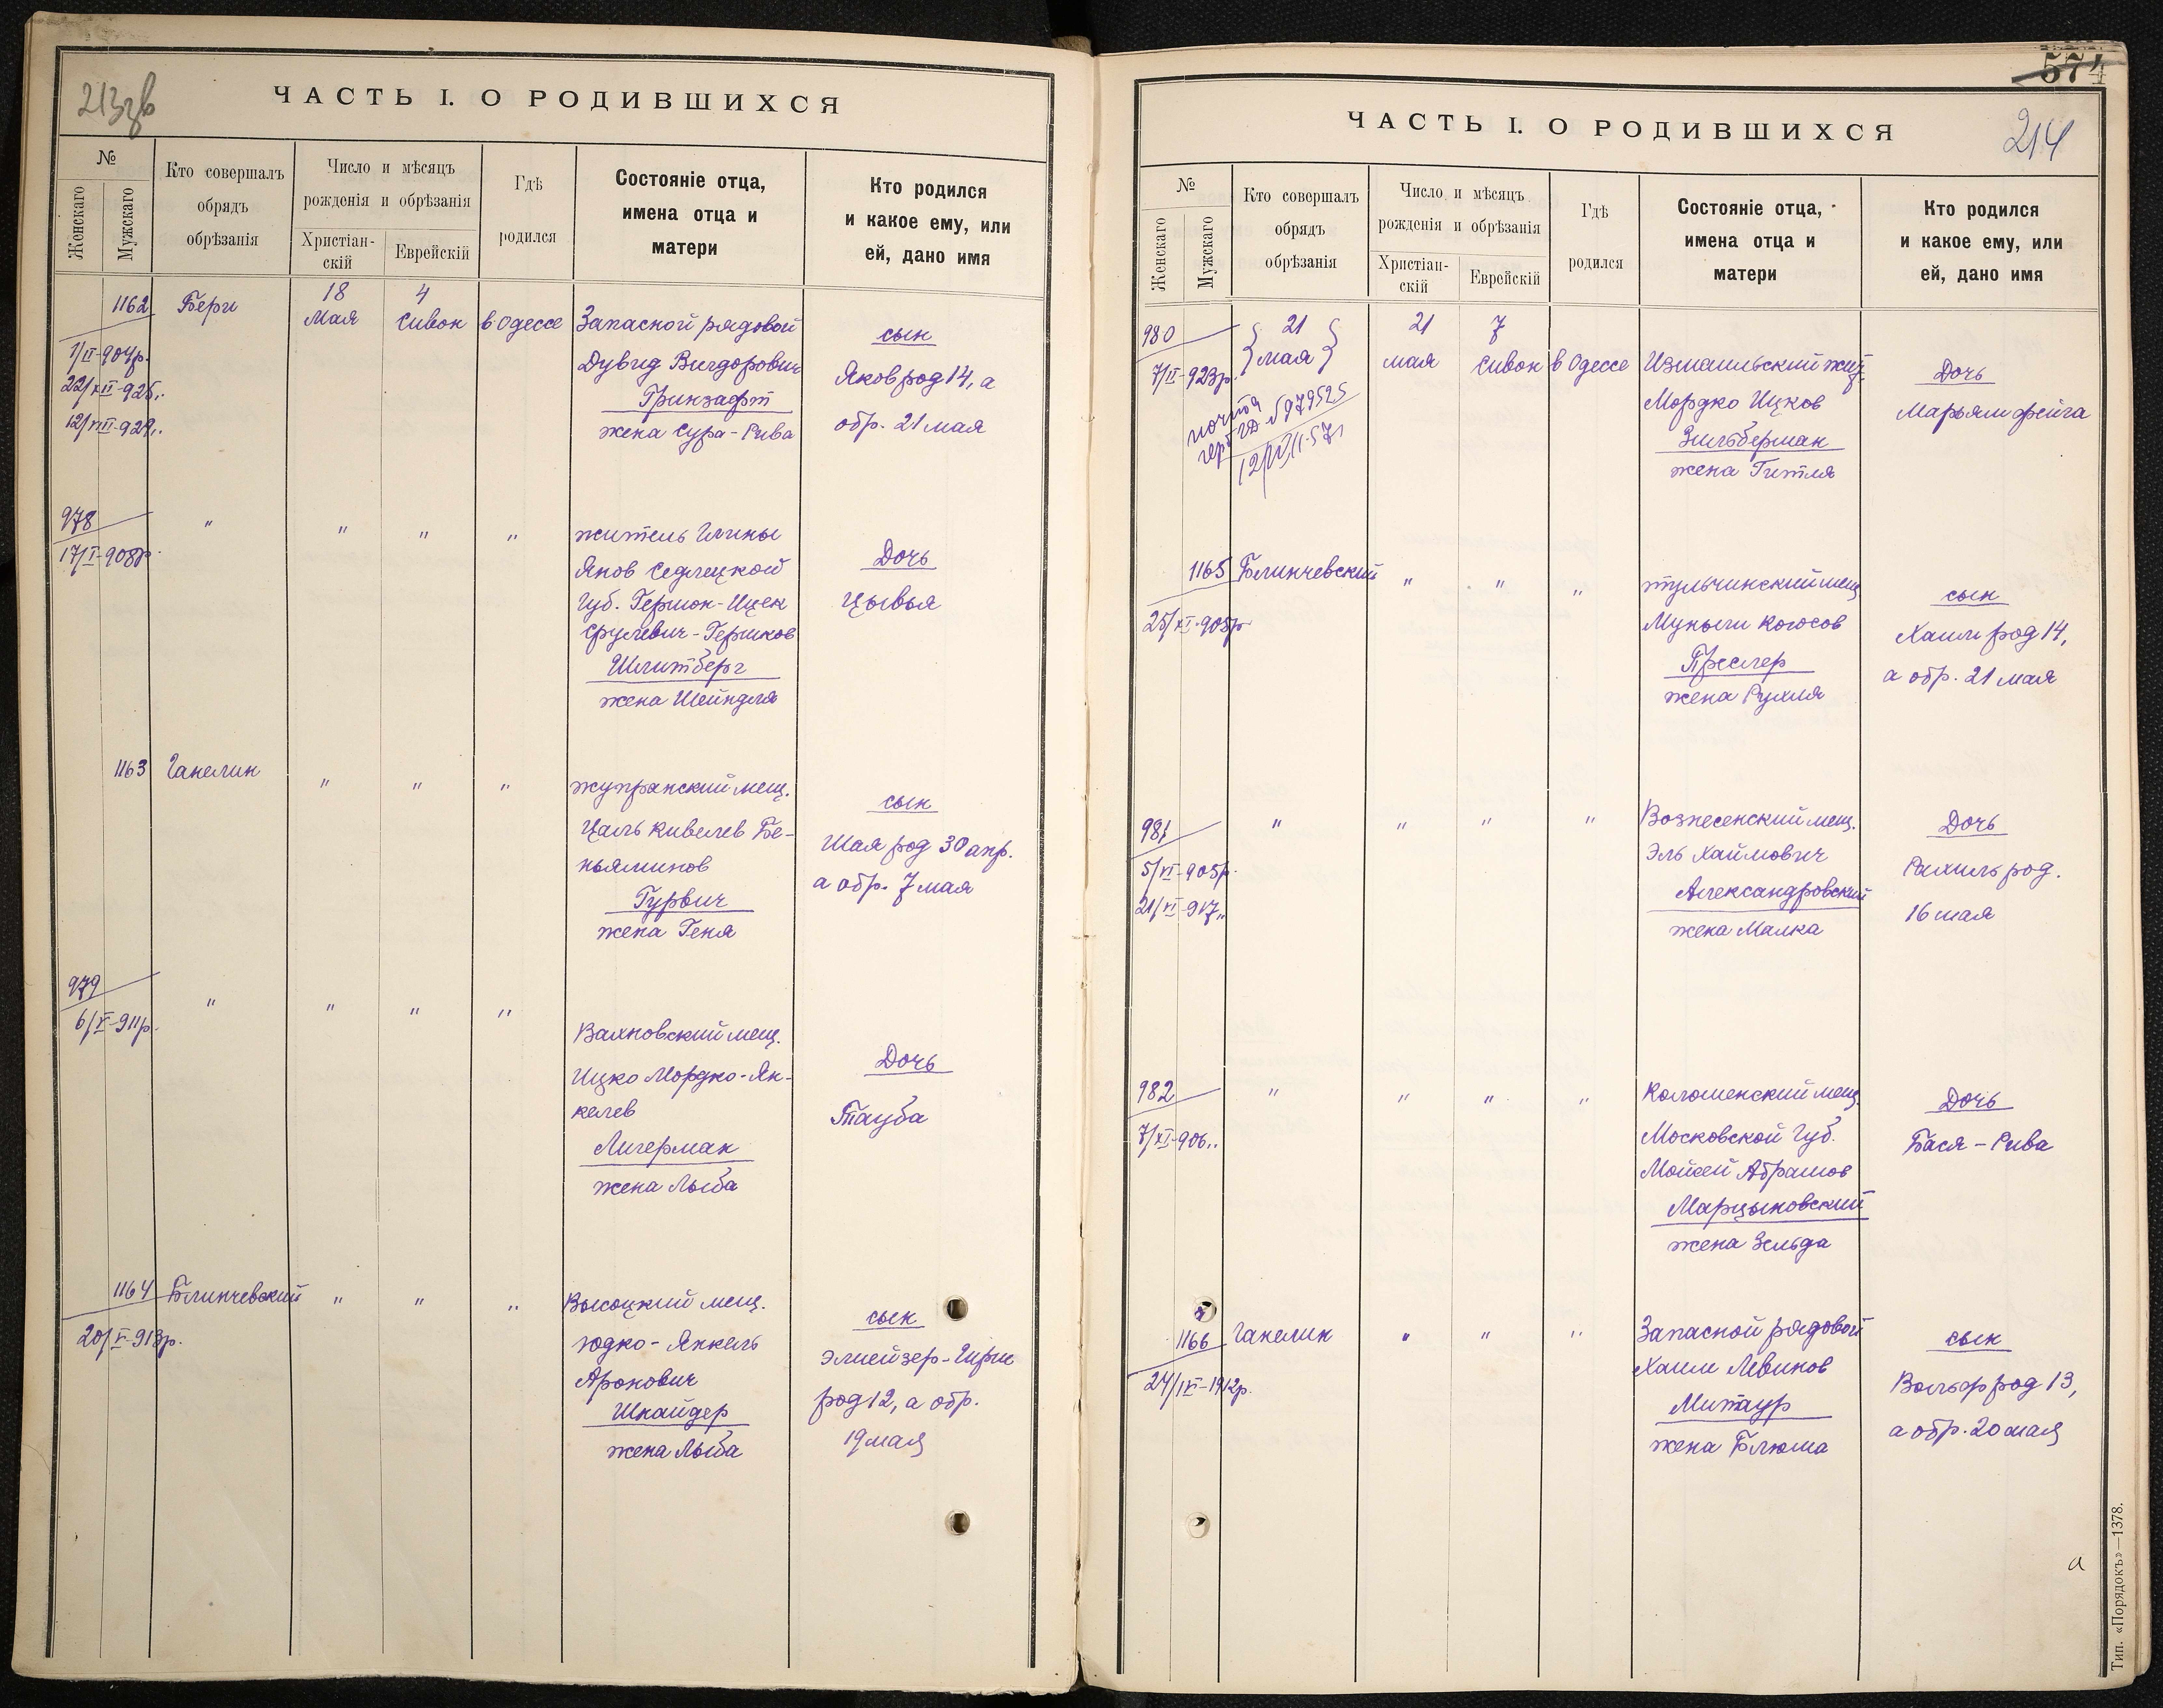 213зв
ЧАСТЬ I. О РОДИВШИХСЯ
№
Женскаго
Мужскаго
Кто совершалъ
обрядъ
обрѣзанія
Число и мѣсяцъ
рожденія и обрѣзанія
Христіан-
скій
Еврейскій
Гдѣ
родился
Состояніе отца,
имена отца и
матери
Кто родился
и какое ему, или
ей, дано имя
1162
1/II-904р.
22/XII-925..
12/VIII-929..
Берг
18
Мая
4
Сивон
в Одессе
Запасной рядовой
Дувид Вигдорович
Гринзафт
жена Сура-Рива
сын
Яков род 14, а
обр. 21 мая
978
17/I-908р.
"
"
"
"
житель Глины
Янов Седлецкой
Губ. Гершон-Ицек
Срулевич-Гершков
Шлитберг
жена Шейндля
Дочь
Цывья
1163
Ганелин
"
"
"
жупранский мещ.
Цаль Кивелев Бе-
ньяминов
Гурвич
жена Геня
сын
Шая род 30 апр.
а обр. 7 мая
979
6/V-911р.
"
"
"
"
Вахновский мещ.
Ицко Мордко-Ян-
келев
Лигерман
жена Лыба
Дочь
Тауба
1164
20/V-913р.
Блинчевский
"
"
"
Высоцкий мещ.
Юдко-Янкель
Аронович
Шнайдер
жена Лыба
сын
Элиейзер-Гирш
род 12, а обр.
19 мая
574
ЧАСТЬ I. О РОДИВШИХСЯ
214
№
Женскаго
Мужскаго
Кто совершалъ
обрядъ
обрѣзанія
Число и мѣсяцъ
рожденія и обрѣзанія
Христіан-
скій
Еврейскій
Гдѣ
родился
Состояніе отца,
имена отца и
матери
Кто родился
и какое ему, или
ей, дано имя
980
7/II-923р.
почта
№979525
12/VII-57г
21
мая
21
мая
7
Сивон
в Одессе
Измаильский жит.
Мордко Ицков
Зильберман
жена Гитля
Дочь
Марьям Фейга
1165
25/XI-905р
Блинчевский
"
"
"
тульчинский мещ
Муныш Когосов
Преслер
жена Рухля
сын
Хаим род 14,
а обр. 21 мая
981
5/VI-905р.
21/VI-917..
"
"
"
"
Вознесенский мещ.
Эль Хаймович
Александровский
жена Малка
Дочь
Рахиль род.
16 мая
982
7/XI-906..
"
"
"
"
Коломенский мещ
Московской Губ.
Мойсей Абрамов
Марцыновский
жена Зельда
Дочь
Бася-Рива
1166
24/IV-1912р.
Ганелин
"
"
"
Запасной рядовой
Хаим Левинов
Митаур
жена Блюма
сын
Вольф род 13,
а обр. 20 мая
а
Тип. «Порядокъ»—1378.